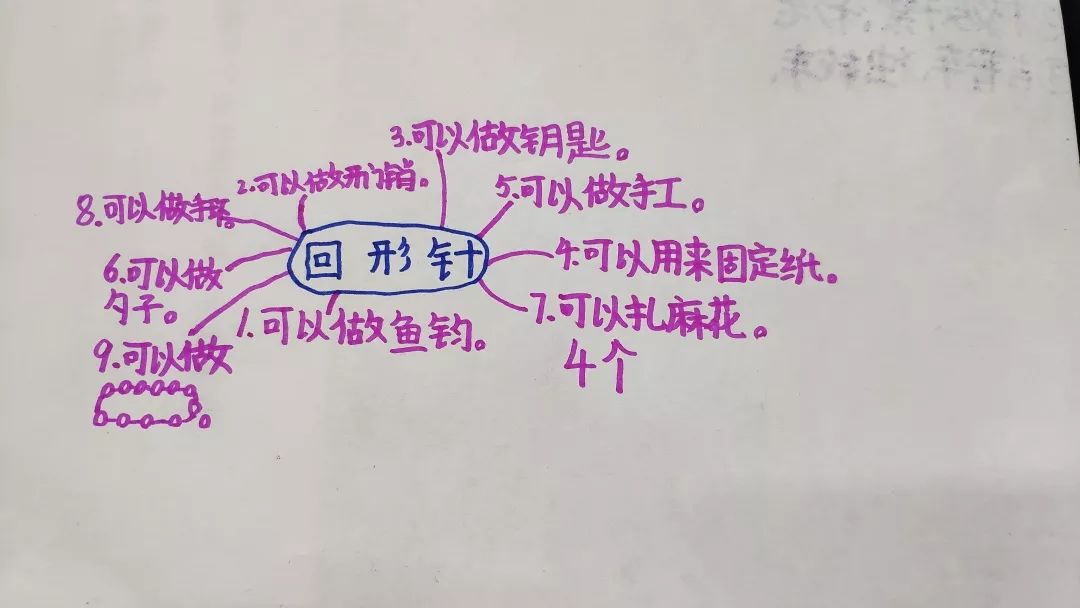 3.可以做钥匙。
2.可以做开门销。
5.可以做手工。
8.可以做手环。
回形针
4.可以用来固定纸。
6.可以做
勺子。
7.可以扎麻花。
1.可以做鱼钩。
9.可以做
4个